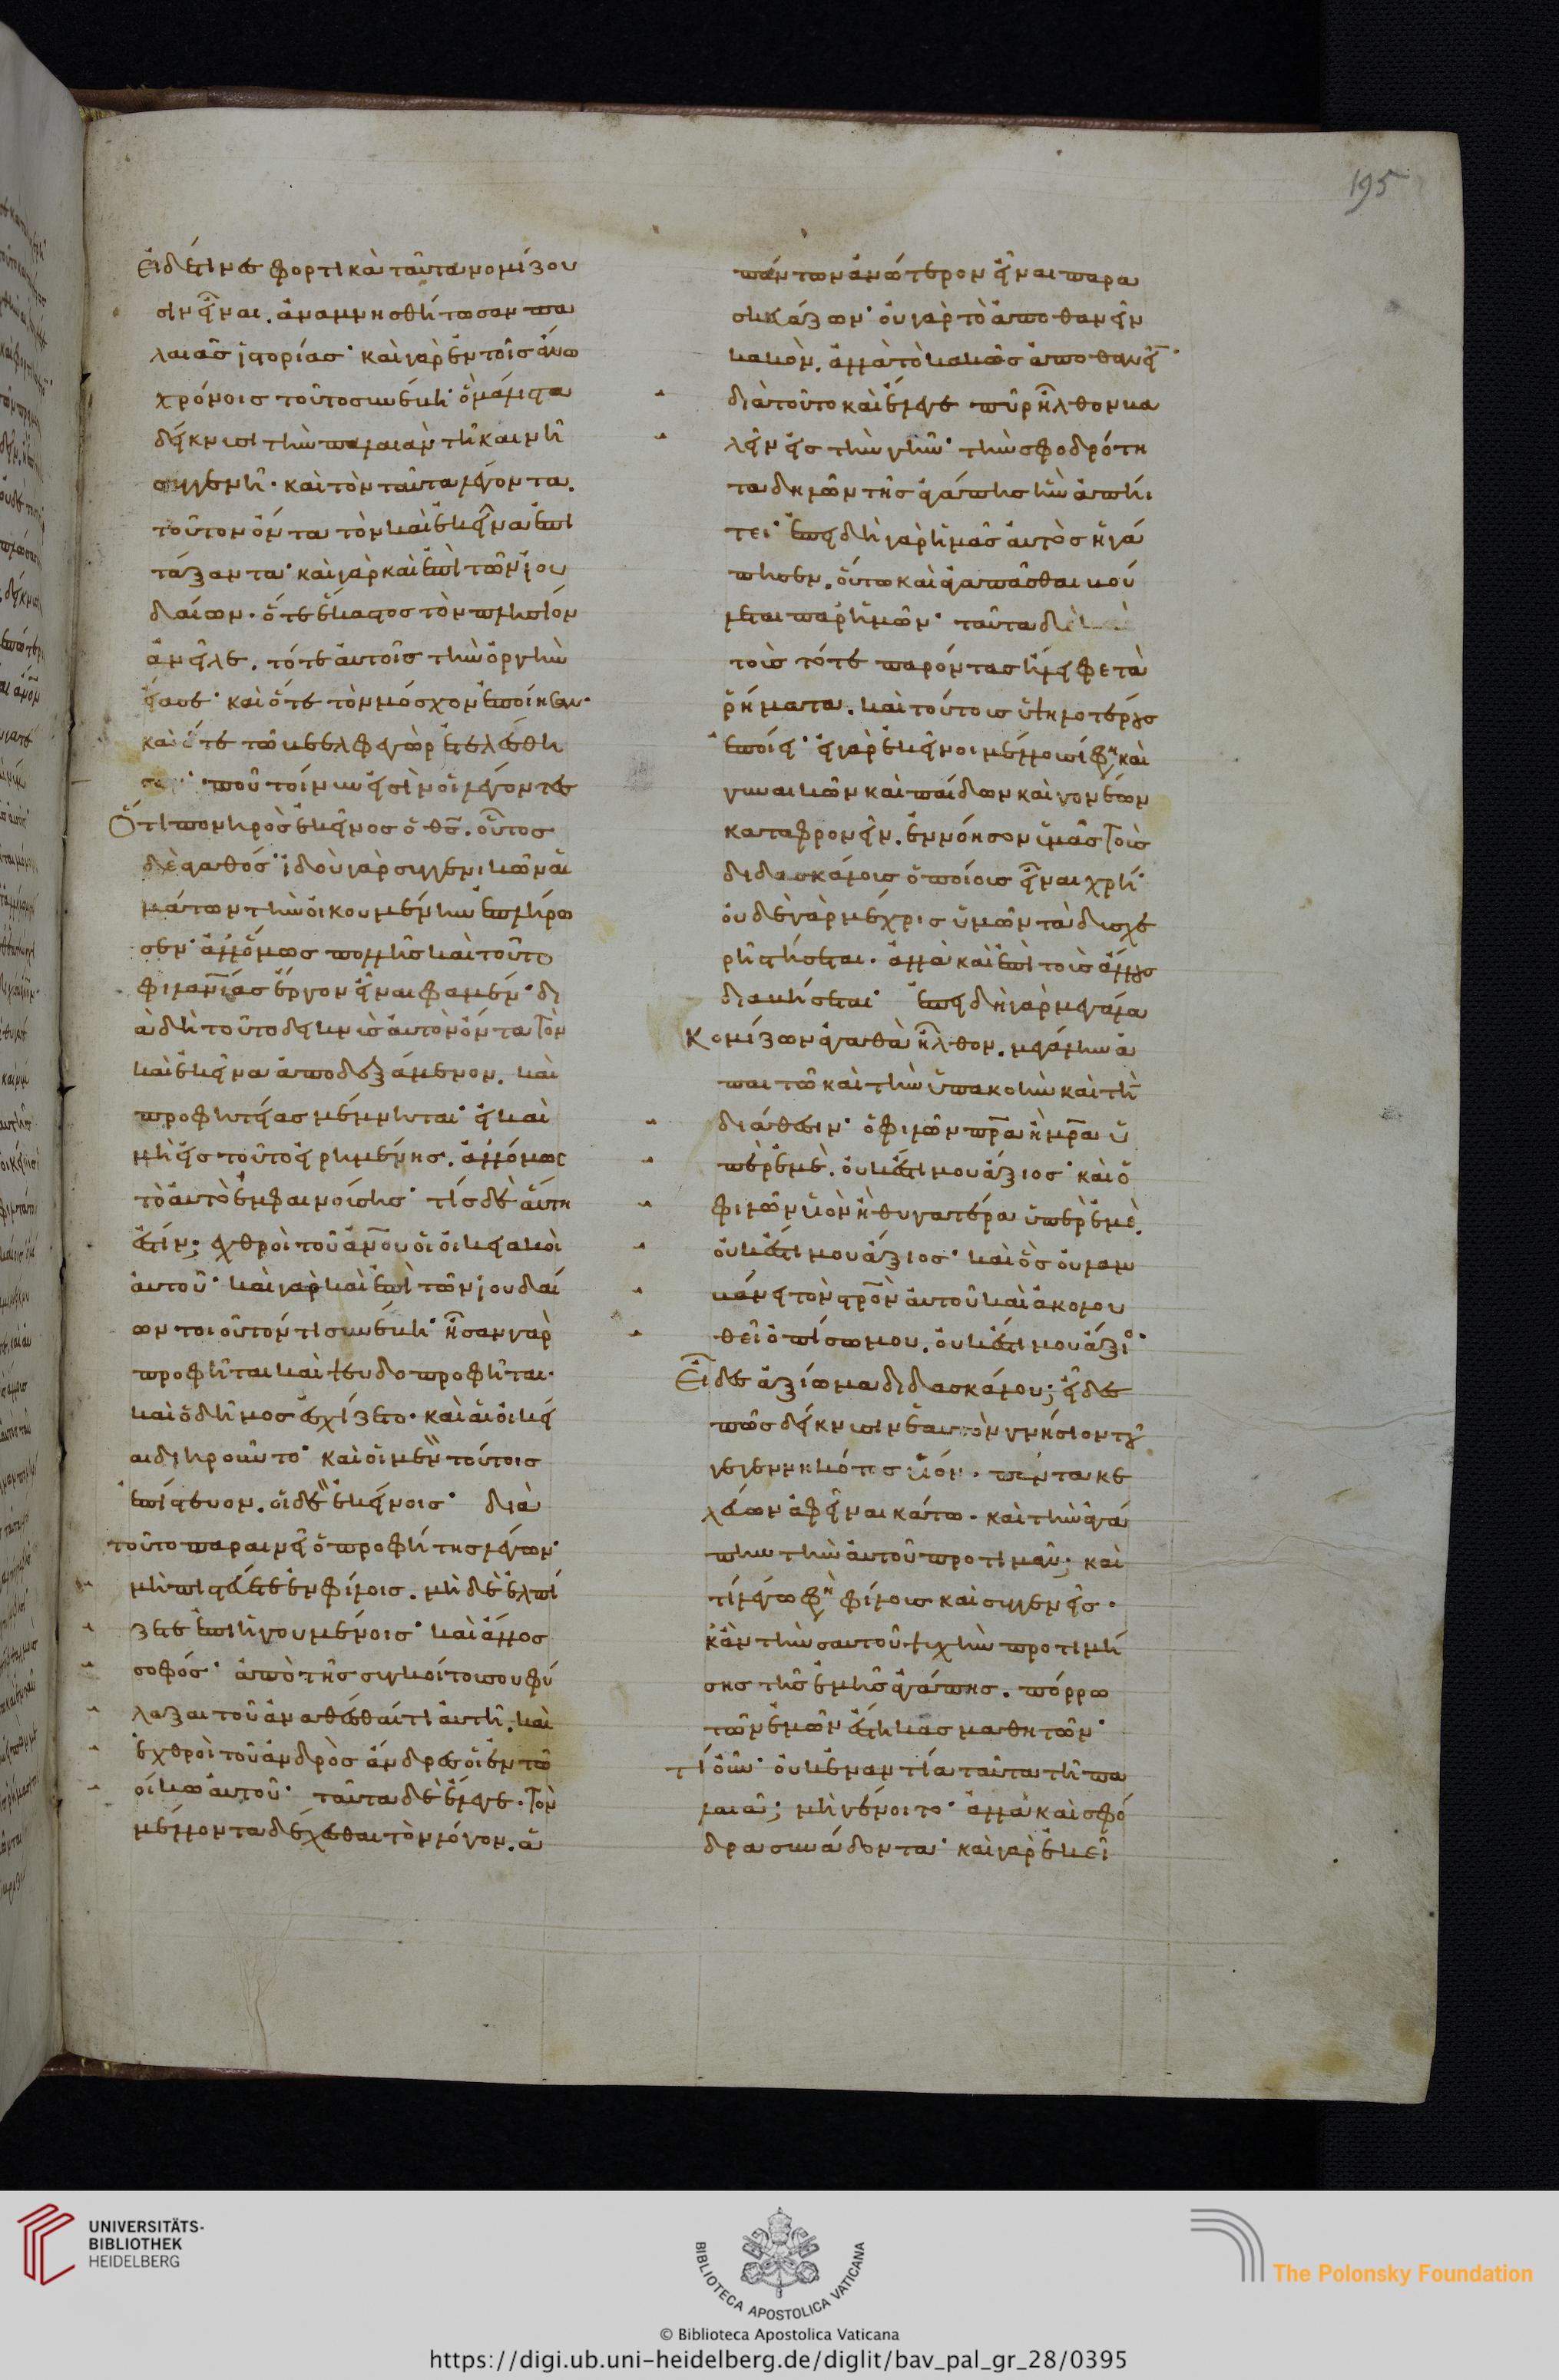 Εἰ δέ τινες φορτικὰ ταῦτα νομίζου
σιν εἶναι. ἀναμνησθήτωσαν πα
λαιᾶς ἱστορίας· καὶ γὰρ ἐν τοῖς ἄνω
χρόνοις τοῦτο συνέβη· ὃ μάλιστα
δείκνυσι τὴν παλαιὰν τῆ καινῆ
συγγενῆ· καὶ τὸν ταῦτα λέγοντα.
τοῦτον ὄντα τὸν καὶ ἐκεῖνα ἐπι
τάξαντα· καὶ γὰρ καὶ ἐπὶ τῶν ἰου
δαίων· ὅτε ἕκαστος τὸν πλησίον
ἀνεῖλε. τότε αὐτοῖς τὴν ὀργὴν
εἴασε· καὶ ὅτε τὸν μόσχον ἐποίησαν·
καὶ ὅτε τῶ βεελφεγὼρ ἐτελέσθη
σαν· ποῦ τοίνυν εἰσὶν οἱ λέγοντες
Ὅτι πονηρὸς ἐκεῖνος ὁ θς. οὗτος
δὲ ἀγαθός· ἰδοὺ γὰρ συγγενικῶν αἱ
μάτων τὴν οἰκουμένην ἐπλήρω
σεν· ἀλλ' ὅμως πολλῆς καὶ τοῦτο
φιλανίας ἔργον εἶναι φαμέν· δι
ὰ δὴ τοῦτο δεικνὺς αὐτὸν ὄντα τὸν
καὶ ἐκεῖνα ἀποδεξάμενον. καὶ
προφητείας μέμνηται· εἰ καὶ
μὴ εἰς τοῦτο εἰρημένης. ἀλλ' ὅμως
τὸ αὐτὸ ἐμφαινούσης· τίς δὲ αὕτη
ἐστίν; ἐχθροὶ τοῦ ἀνου οἱ οἰκειακοὶ
αὐτοῦ· καὶ γὰρ καὶ ἐπὶ τῶν ἰουδαί
ων τοιοῦτόν τι συνέβη· ἦσαν γὰρ
προφῆται καὶ ψευδοπροφῆται·
καὶ ὁ δῆμος ἐσχίζετο· καὶ αἱ οἰκεί
αι διηροῦντο· καὶ οἱ μὲν τούτοις
ἐπίστευον. οἱ δὲ ἐκείνοις· διὰ
τοῦτο παραινεῖ ὁ προφήτης λέγων·
μὴ πιστεύετε ἐν φίλοις. μὴ δὲ ἐλπί
ζετε ἐπὶ ἡγουμένοις· καὶ ἄλλος
σοφός· ἀπὸ τῆς συγκοίτου σου φύ
λαξαι τοῦ ἀναθέσθαί τι αὐτῆ. καὶ
ἐχθροὶ τοῦ ἀνδρὸς ἄνδρες οἱ ἐν τῶ
οἴκω αὐτοῦ· ταῦτα δὲ ἔλεγε. τὸν
μέλλοντα δέχεσθαι τὸν λόγον. ἁ
πάντων ἀνώτερον εἶναι παρα
σκευάζων· οὐ γὰρ τὸ ἀποθανεῖν
κακὸν. ἀλλὰ τὸ κακῶς ἀποθανεῖ·
διὰ τοῦτο καὶ ἔλεγε πῦρ ἦλθον βα
λεῖν εἰς τὴν γῆν· τὴν σφοδρότη
τα δηλῶν τῆς ἀγάπης ἣν ἀπή
τει· ἐπειδὴ γὰρ ἡμᾶς αὐτὸς ἠγά
πησεν. οὕτω καὶ ἀγαπᾶσθαι βού
λεται παρ' ἡμῶν· ταῦτα δὲ
τοὺς τότε παρόντας ἤλειφε τὰ
ῥήματα. καὶ τούτοις ὑψηλοτέρους
ἐποίει· εἰ γὰρ ἐκεῖνοι μέλλουσί φη καὶ
γυναικῶν καὶ παίδων καὶ γονέων
καταφρονεῖν. ἐννόησον ὑμᾶς τοὺς
διδασκάλους ὁποίους εἶναι χρή·
οὐδὲ γὰρ μέχρις ὑμῶν τὰ δυσχε
ρῆ στήσεται. ἀλλὰ καὶ ἐπὶ τοὺς ἄλλους
διαβήσεται· ἐπειδὴ γὰρ μεγάλα
Κομίζων ἀγαθὰ ἦλθον. μεγάλην ἀ
παιτῶ καὶ τὴν ὑπακοὴν καὶ τὴν
διάθεσιν· ὁ φιλῶν πρα ἢ μρα ὑ
πὲρ ἐμὲ. οὐκ ἔστι μου ἄξιος· καὶ ὁ
φιλῶν υἱὸν ἢ θυγατέρα ὑπὲρ ἐμὲ.
οὐκ ἔστι μου ἄξιος· καὶ ὃς οὐ λαμ
βάνει τὸν στρον αὐτοῦ καὶ ἀκολου
θεῖ ὀπίσω μου. οὐκ ἔστι μου ἄξιο·
Εἶδες ἀξίωμα διδασκάλου; εἶδες
πῶς δείκνυσιν ἑαυτὸν γνήσιον τοῦ
γεγεννηκότος υἱόν. πάντα κε
λεύων ἀφεῖναι κάτω. καὶ τὴν ἀγά
πην τὴν αὐτοῦ προτιμᾶν; καὶ
τί λέγω φη φίλους καὶ συγγενεῖς.
κἂν τὴν σαυτοῦ ψυχὴν προτιμή
σης τῆς ἐμῆς ἀγάπης. πόρρω
τῶν ἐμῶν ἕστηκας μαθητῶν·
τί οὖν· οὐκ ἐναντία ταῦτα τῆ πα
λαιᾶ; μὴ γένοιτο· ἀλλὰ καὶ σφό
δρα συνάδοντα· καὶ γὰρ ἐκεῖ
195
UNIVERSITÄTS-
BIBLIOTHEK
HEIDELBERG
BIBLIOTECA APOSTOLICA VATICANA
The Polonsky Foundation
© Biblioteca Apostolica Vaticana
https://digi.ub.uni-heidelberg.de/diglit/bav_pal_gr_28/0395